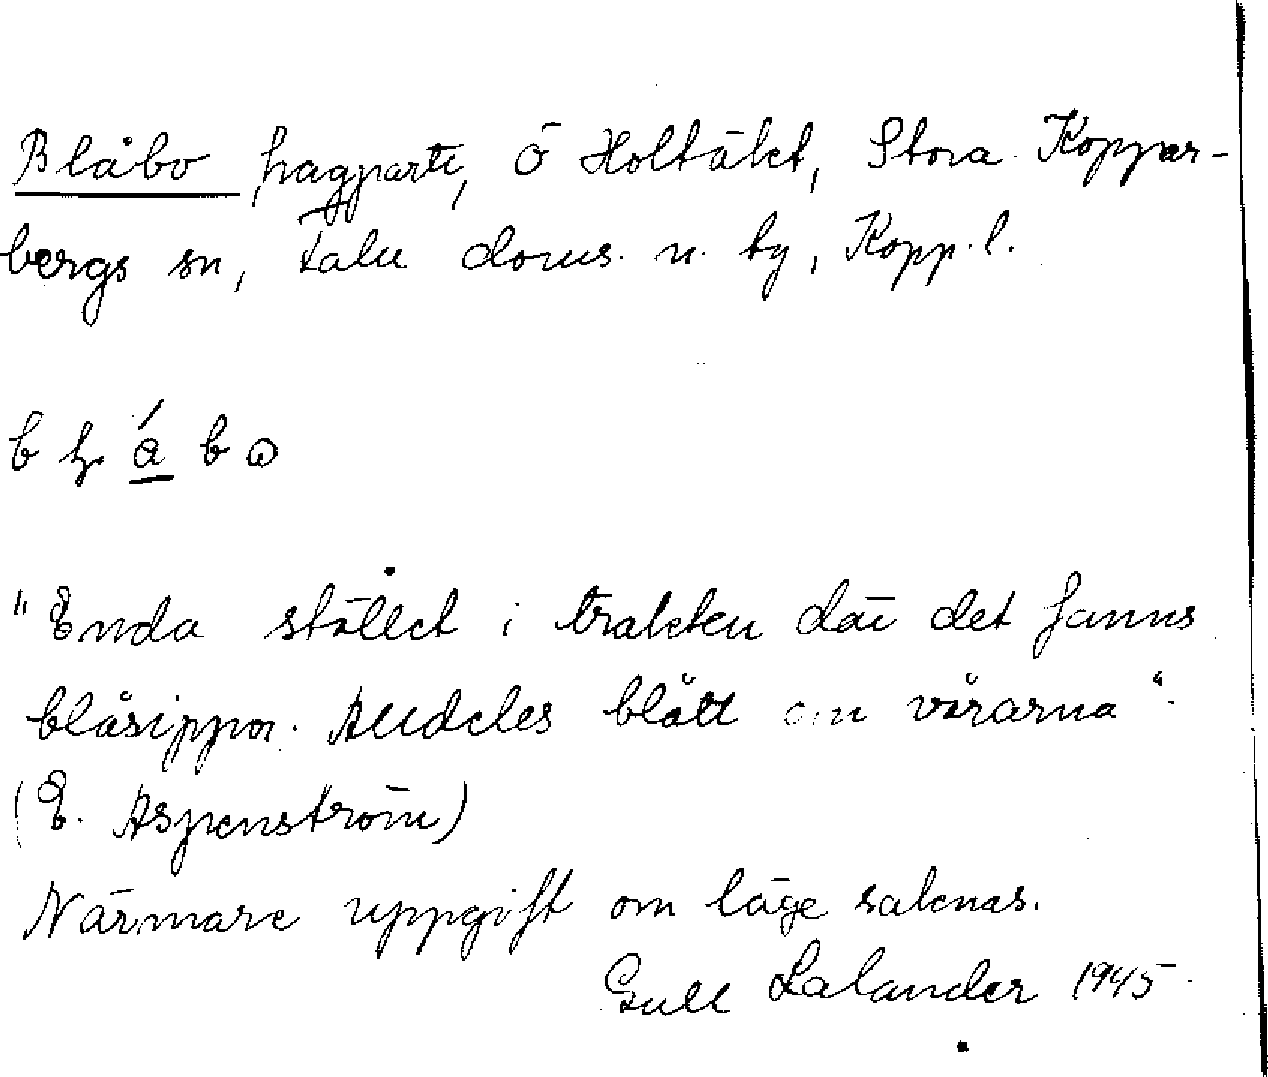 Blåbo hagparti, Ö Holtäkt, Stora Koppar-
bergs sn, Falu doms. n. by, Kopp. l.
"Enda stället i trakten där det fanns
blåsippor. Alldeles blått om vårarna".
(E. Aspenström)
Närmare uppgift om läge saknas.
Gull Lalander 1945.